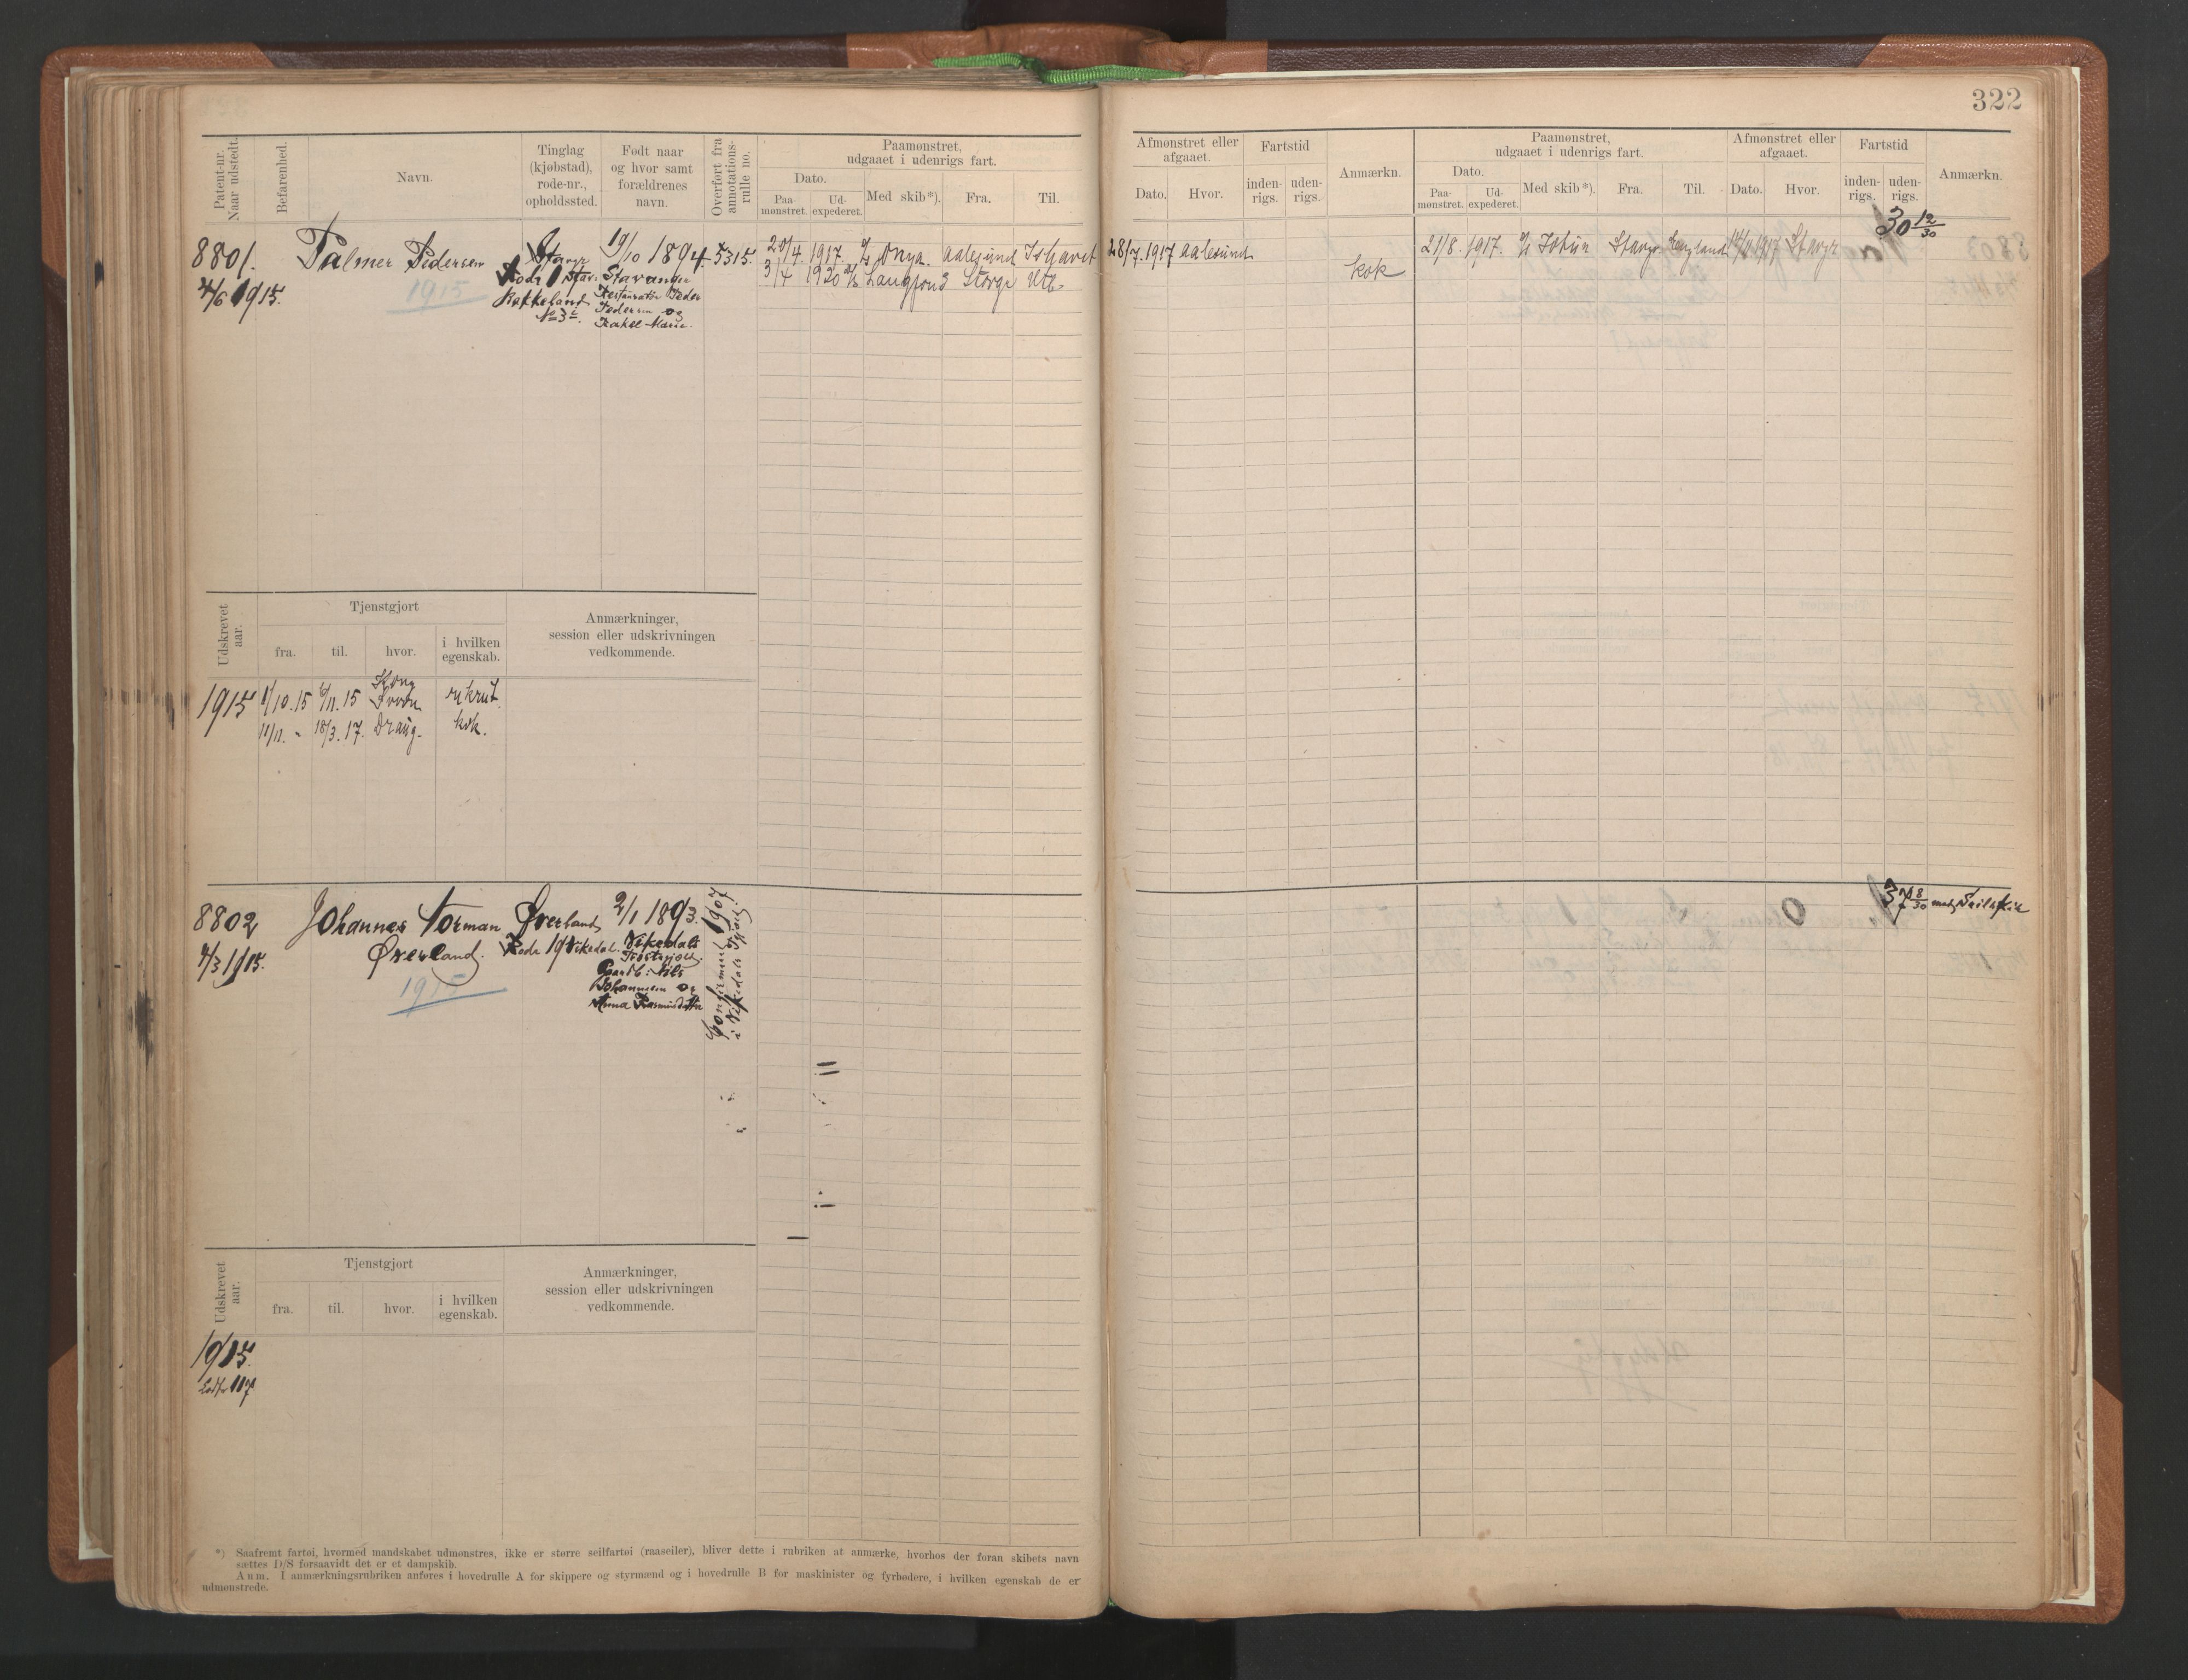 322
Patent-nr. Naar udstedt.
Befarenhed.
Navn.
Tinglag (kjøbstad), rode-nr., opholdssted.
Født naar og hvor samt forældrenes navn.
Overført fra annotations-rulle no.
Paamønstret, udgaaet i udenrigs fart.
Dato.
Paa-mønstret.
Ud-expederet.
Med skib*).
Fra.
Til.
Afmønstret eller afgaaet.
Dato.
Hvor.
Fartstid
inden-rigs.
uden-rigs.
Anmærkn.
Paamønstret, udgaaet i udenrigs fart.
Dato.
Paa-mønstret.
Ud-expederet.
Med skib*).
Fra.
Til.
Afmønstret eller afgaaet.
Dato.
Hvor.
Fartstid
inden-rigs.
uden-rigs.
Anmærkn.
8801.
4/6 1915.
Palmer Pedersen
1915
Stavgr
Rode 1 Stav:
Bakkeland
No 3
19/10 1894.
Stavanger
Restauratør Peder
Pedersen og
Rakel Marie.
5315.
20/4. 1917. Aalesund Ishavet
3/4 1920 Langfond Stavgr Utl.
28/7.1917 Aalesund
kok
21/8. 1917. Jotun Stavgr England 1917 Stavgr
30 12/30
Udskrevet aar.
Tjenstgjort
fra.
til.
hvor.
i hvilken egenskab.
Anmærkninger, session eller udskrivningen vedkommende.
1915
1/10.15 6/11.15 rekrut.
11/11. - 18/3.17. Draug. kok.
8802
4/3 1915.
Johannes Torman
Øverland.
1915
Øverland
Rode 19 Vikedal.
2/1 1893.
Vikedal
Gaardb: Nils
Johannesen og
Anna Rasmusdatter
Confirmeret 1907
i Vikedal
0
37 8/30 med Seilskib
Udskrevet aar.
Tjenstgjort
fra.
til.
hvor.
i hvilken egenskab.
Anmærkninger, session eller udskrivningen vedkommende.
1915.
Lodtr 117
*) Saafremt fartøi, hvormed mandskabet udmønstres, ikke er større seilfartøi (raaseiler), bliver dette i rubriken at anmærke, hvorhos der foran skibets navn
sættes D/S forsaavidt det er et dampskib.
Anm. I anmærkningsrubriken anføres i hovedrulle A for skippere og styrmænd og i hovedrulle B for maskinister og fyrbødere, i hvilken egenskab de er
udmønstrede.